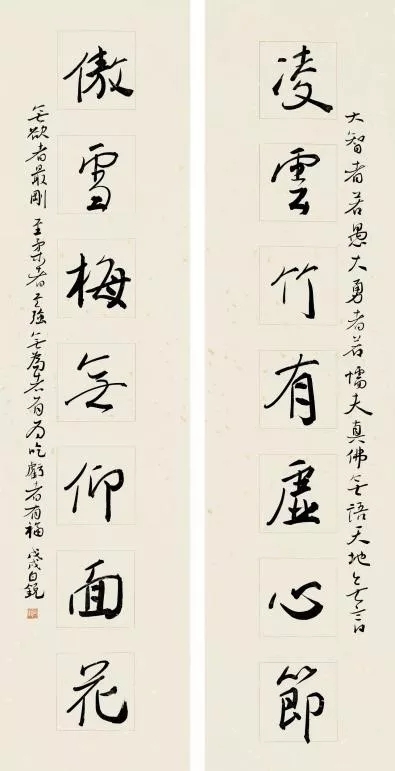 大智者若愚大勇者若懦夫真佛無語天地亦無言
凌雲竹有虛心節
傲雪梅無仰面花
無欲者最剛至柔者至強無為者有為吃虧者有福戊戌白銳